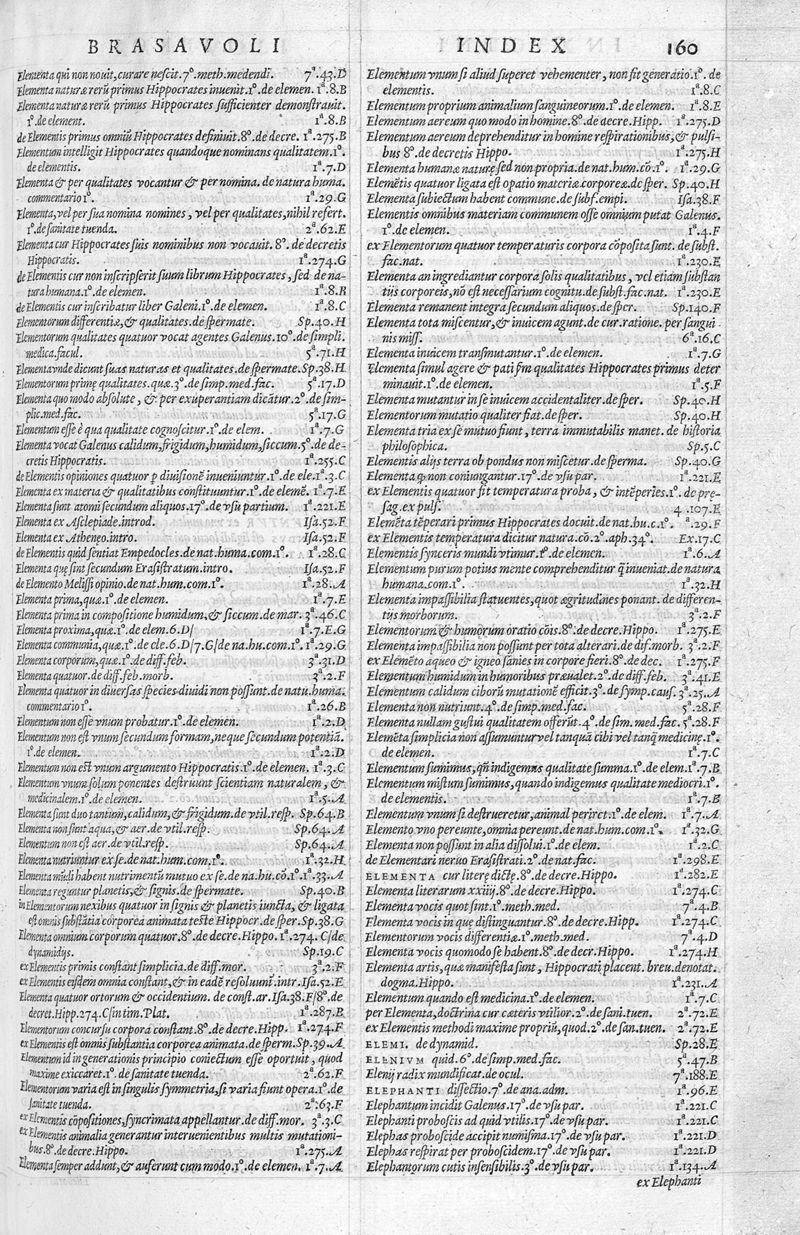 BRASAVOLI
Elementa qui non nouit, curare nescit.7º.meth.medendi. 7ª.43.D
Elementa naturæ rerũ primus Hippocrates inuenit.1º.de elemen. 1ª.8.B
Elementa naturæ rerũ primus Hippocrates sufficienter demonstrauit.
1º.de element. 1ª.8.B
de Elementis primus omniũ Hippocrates definiuit.8º.de decre. 1ª.275.B
Elementum intelligit Hippocrates quandoque nominans qualitatem.1º.
de elementis. 1ª.7.D
Elementa & per qualitates vocantur & per nomina. de natura huma.
commentario 1º. 1ª.29.G
Elementa, vel per sua nomina nomines, vel per qualitates, nihil refert.
1º.de sanitate tuenda. 2ª.62.E
Elementa cur Hippocrates suis nominibus non vocauit. 8º. de decretis
Hippocratis. 1ª.274.G
de Elementis cur non inscripserit suum librum Hippocrates, sed de na-
tura humana.1º.de elemen. 1ª.8.B
de Elementis cur inscribatur liber Galeni.1º.de elemen. 1ª.8.C
Elementorum differentiæ, & qualitates.de spermate. Sp.40.H
Elementorum qualitates quatuor vocat agentes Galenus.10º.de simpli.
medica.facul. 5ª.71.H
Elementa vnde dicunt suas naturas et qualitates.de spermate. Sp.38.H
Elementorum primę qualitates.quæ.3º.de simp.med.fac. 5ª.17.D
Elementa quo modo absolute, & per exuperantiam dicãtur.2º.de sim-
plic.med.fac. 5ª.17.G
Elementum esse è qua qualitate cognoscitur.1º.de elem. 1ª.7.G
Elementa vocat Galenus calidum, frigidum, humidum, siccum.5º.de de-
cretis Hippocratis. 1ª.255.C
de Elementis opiniones quatuor p diuisionẽ inueniuntur.1º.de ele.1ª.3.C
Elementa ex materia & qualitatibus constituuntur.1º.de elemẽ. 1ª.7.E
Elementa sunt atomi secundum aliquos.17º.de vsu partium. 1ª.221.E
Elementa ex Asclepiade.introd. Isa.52.F
Elementa ex Atheneo.intro. Isa.52.F
de Elementis quid sentiat Empedocles.de nat.huma.com.1º. 1ª.28.C
Elementa quę sint secundum Erasistratum.intro. Isa.52.F
de Elemento Melissi opinio.de nat.hum.com.1º. 1ª.28.A
Elementa prima, quæ.1º.de elemen. 1ª.7.E
Elementa prima in compositione humidum, & siccum.de mar. 3ª.46.C
Elementa proxima, quæ.1º.de elem.6.D/ 1ª.7.E.G
Elementa communia, quæ.1º.de ele.6.D/7.G/de na.hu.com.1º. 1ª.29.G
Elementa corporum, quæ.1º.de diff.feb. 3ª.31.D
Elementa quatuor.de diff.feb.morb. 3ª.2.F
Elementa quatuor in diuersas species diuidi non possunt.de natu.huma.
commentario 1º. 1ª.26.B
Elementum non esse vnum probatur.1º.de elemen. 1ª.2.D
Elementum non est vnum secundum formam, neque secundum potentiã.
1º.de elemen. 1ª.2.D
Elementum non est vnum argumento Hippocratis.1º.de elemen. 1ª.3.C
Elementum vnum solum ponentes destruunt scientiam naturalem, &
medicinalem.1º.de elemen. 1ª.5.A
Elementa sunt duo tantium, calidum, & frigidum.de vtil.resp. Sp.64.B
Elementa non sunt aqua, & aer.de vtil.resp. Sp.64.A
Elementum non est aer.de vtil.resp. Sp.64.A
Elementa nutriuntur ex se.de nat.hum.com.1º. 1ª.32.H
Elementa mũdi habent nutrimentũ mutuo ex se.de na.hu.cõ.1º.1ª.33.A
Elementa reguntur planetis, & signis.de spermate. Sp.40.B
in Elementorum nexibus quatuor in signis & planetis iuncta, & ligata
est omnis substãtia corporea animata teste Hippocr.de sper.Sp.38.G
Elementa omnium corporum quatuor.8º.de decre.Hippo.1ª.274. C/de
dynamidijs. Sp.19.C
ex Elementis primis constant simplicia.de diff.mor. 3ª.2.F
ex Elementis eisdem omnia constant, & in eadẽ resoluunt.intr.Isa.52.E
Elementa quatuor ortorum & occidentium. de const.ar.Isa.38.F/8º.de
decret.Hipp.274.C/in tim.Plat. 1ª.287.B
Elementorum concursu corpora constant.8º.de decre.Hipp. 1ª.274.F
ex Elementis est omnis substantia corporea animata.de sperm.Sp.39.A
Elementum id in generationis principio coniectum esse oportuit, quod
maxime exiccaret.1º.de sanitate tuenda. 2ª.62.F
Elementorum varia est in singulis symmetria, si varia fiunt opera.1º.de
sanitate tuenda. 2ª.63.F
ex Elementis cõpositiones, syncrimata appellantur.de diff.mor. 3ª.3.C
ex Elementis animalia generantur interuenientibus multis mutationi-
bus.8º.de decre.Hippo. 1ª.275.A
Elementa semper addunt, & auferunt cum modo.1º.de elemen. 1ª.7.A
INDEX 160
Elementum vnum si aliud superet vehementer, non fit generatio.1º. de
elementis. 1ª.8.C
Elementum proprium animalium sanguineorum.1º.de elemen. 1ª.8.E
Elementum aereum quo modo in homine.8º.de decre.Hipp. 1ª.275.D
Elementum aereum deprehenditur in homine respirationibus, & pulsi-
bus 8º.de decretis Hippo. 1ª.275.H
Elementa humanæ naturę sed non propria.de nat.hum.cõ.1º. 1ª.29.G
Elemẽtis quatuor ligata est opatio materiæ corporeæ.de sper. Sp.40.H
Elementa subiectum habent commune.de subf.empi. Isa.38.F
Elementis omnibus materiam communem osse omnium putat Galenus.
1º.de elemen. 1ª.4.F
ex Elementorum quatuor temperaturis corpora cõposita sunt. de subst.
fac.nat. 1ª.230.E
Elementa an ingrediantur corpora solis qualitatibus, vel etiam substan
tijs corporeis, nõ est necessarium cognitu.de subst.fac.nat. 1ª.230.E
Elementa remanent integra secundum aliquos.de sper. Sp.140.F
Elementa tota miscentur, & inuicem agunt.de cur.ratione. per sangui
nis miss. 6ª.16.C
Elementa inuicem transmutantur.1º.de elemen. 1ª.7.G
Elementa simul agere & pati pm qualitates Hippocrates primus deter
minauit.1º.de elemen. 1ª.5.F
Elementa mutantur in se inuicem accidentaliter.de sper. Sp.40.H
Elementorum mutatio qualiter fiat.de sper. Sp.40.H
Elementa tria ex se mutuo fiunt, terra immutabilis manet. de historia
philosophica. Sp.5.C
Elementis alijs terra ob pondus non miscetur.de sperma. Sp.40.G
Elementa non coniungantur.17º.de vsu par. 1ª.221.E
ex Elementis quatuor fit temperatura proba, & intẽperies.1º. de prę-
sag.ex puls. 4.107.E
Elemẽta tẽperari primus Hippocrates docuit.de nat.hu.c.1º. ª.29.F
ex Elementis temperatura dicitur natura cõ.2º.aph.34º. Ex.17.C
Elementis synceris mundi vtimur.1º.de elemen. 1ª.6.A
Elementum purum potius mente comprehenditur q̃ inueniat.de natura
humana.com.1º. 1ª.32.H
Elementa impassibilia statuentes, quot ægritudines ponant. de differen-
tijs morborum. 3ª.2.F
Elementorum & humorum oratio cõis.8º.de decre.Hippo. 1ª.275.E
Elementa impassibilia non possunt per tota alterari.de dif.morb. 3ª.2.F
ex Elemẽto aqueo & igneo sanies in corpore fieri.8º.de dec. 1ª.275.F
Elementum humidum in humoribus præualet.2º.de diff.feb. 3ª.41.E
Elementum calidum ciborũ mutationẽ efficit.3º.de symp.caus. 3ª.25.A
Elementa non nutriunt.4º.de simp.med.fac. 5ª.28.F
Elementa nullam gustui qualitatem offerũt.4º.de sim.med.fac. 5ª.28.F
Elemẽta simplicia non assumuntur vel tanquã cibi vel tanq̃ medicinę.1º.
de elemen. 1ª.7.C
Elementum sumimus, qñ indigemus qualitate summa.1º.de elem.1ª.7.B
Elementum mistum sumimus, quando indigemus qualitate mediocri.1º.
de elementis. 1ª.7.B
Elementum vnum si destrueretur, animal periret.1º.de elem. 1ª.7.A
Elemento vno pereunte, omnia pereunt.de nat.hum.com.1º. 1ª.32.G
Elementa non possunt in alia dissolui.1º.de elem. 1ª.2.C
de Elementari neruo Erasistrati.2º.de nat.fac. 1ª.298.E
ELEMENTA cur literę dictę.8º.de decre.Hippo. 1ª.282.E
Elementa literarum xxiiij.8º.de decre.Hippo. 1ª.274.C
Elementa vocis quot sint.1º.meth.med. 7ª.4.B
Elementa vocis in quę distinguantur.8º.de decre.Hipp. 1ª.274.C
Elementorum vocis differentiæ.1º.meth.med. 7ª.4.D
Elementa vocis quomodo se habent.8º.de decr.Hippo. 1ª.274.H
Elementa artis, quæ manifesta sunt, Hippocrati placent. breu.denotat.
dogma.Hippo. 1ª.231.A
Elementum quando est medicina.1º.de elemen. 1ª.7.C
per Elementa, doctrina cur cæteris vtilior.2º.de sani.tuen. 2ª.72.E
ex Elementis methodi maxime propriũ, quod.2º.de san.tuen. 2ª.72.E
ELEMI. de dynamid. Sp.28.E
ELENIVM quid.6º.de simp.med.fac. 5ª.47.B
Elenij radix mundificat.de ocul. 7ª.188.E
ELEPHANTI dissectio.7º.de ana.adm. 1ª.96.E
Elephantum incidit Galenus.17º.de vsu par. 1ª.221.C
Elephanti proboscis ad quid vtilis.17º.de vsu par. 1ª.221.C
Elephas proboscide accipit numisma.17º.de vsu par. 1ª.221.D
Elephas respirat per proboscidem.17º.de vsu par. 1ª.221.D
Elephantorum cutis insensibilis.3º.de vsu par. 1ª.134.A
ex Elephanti